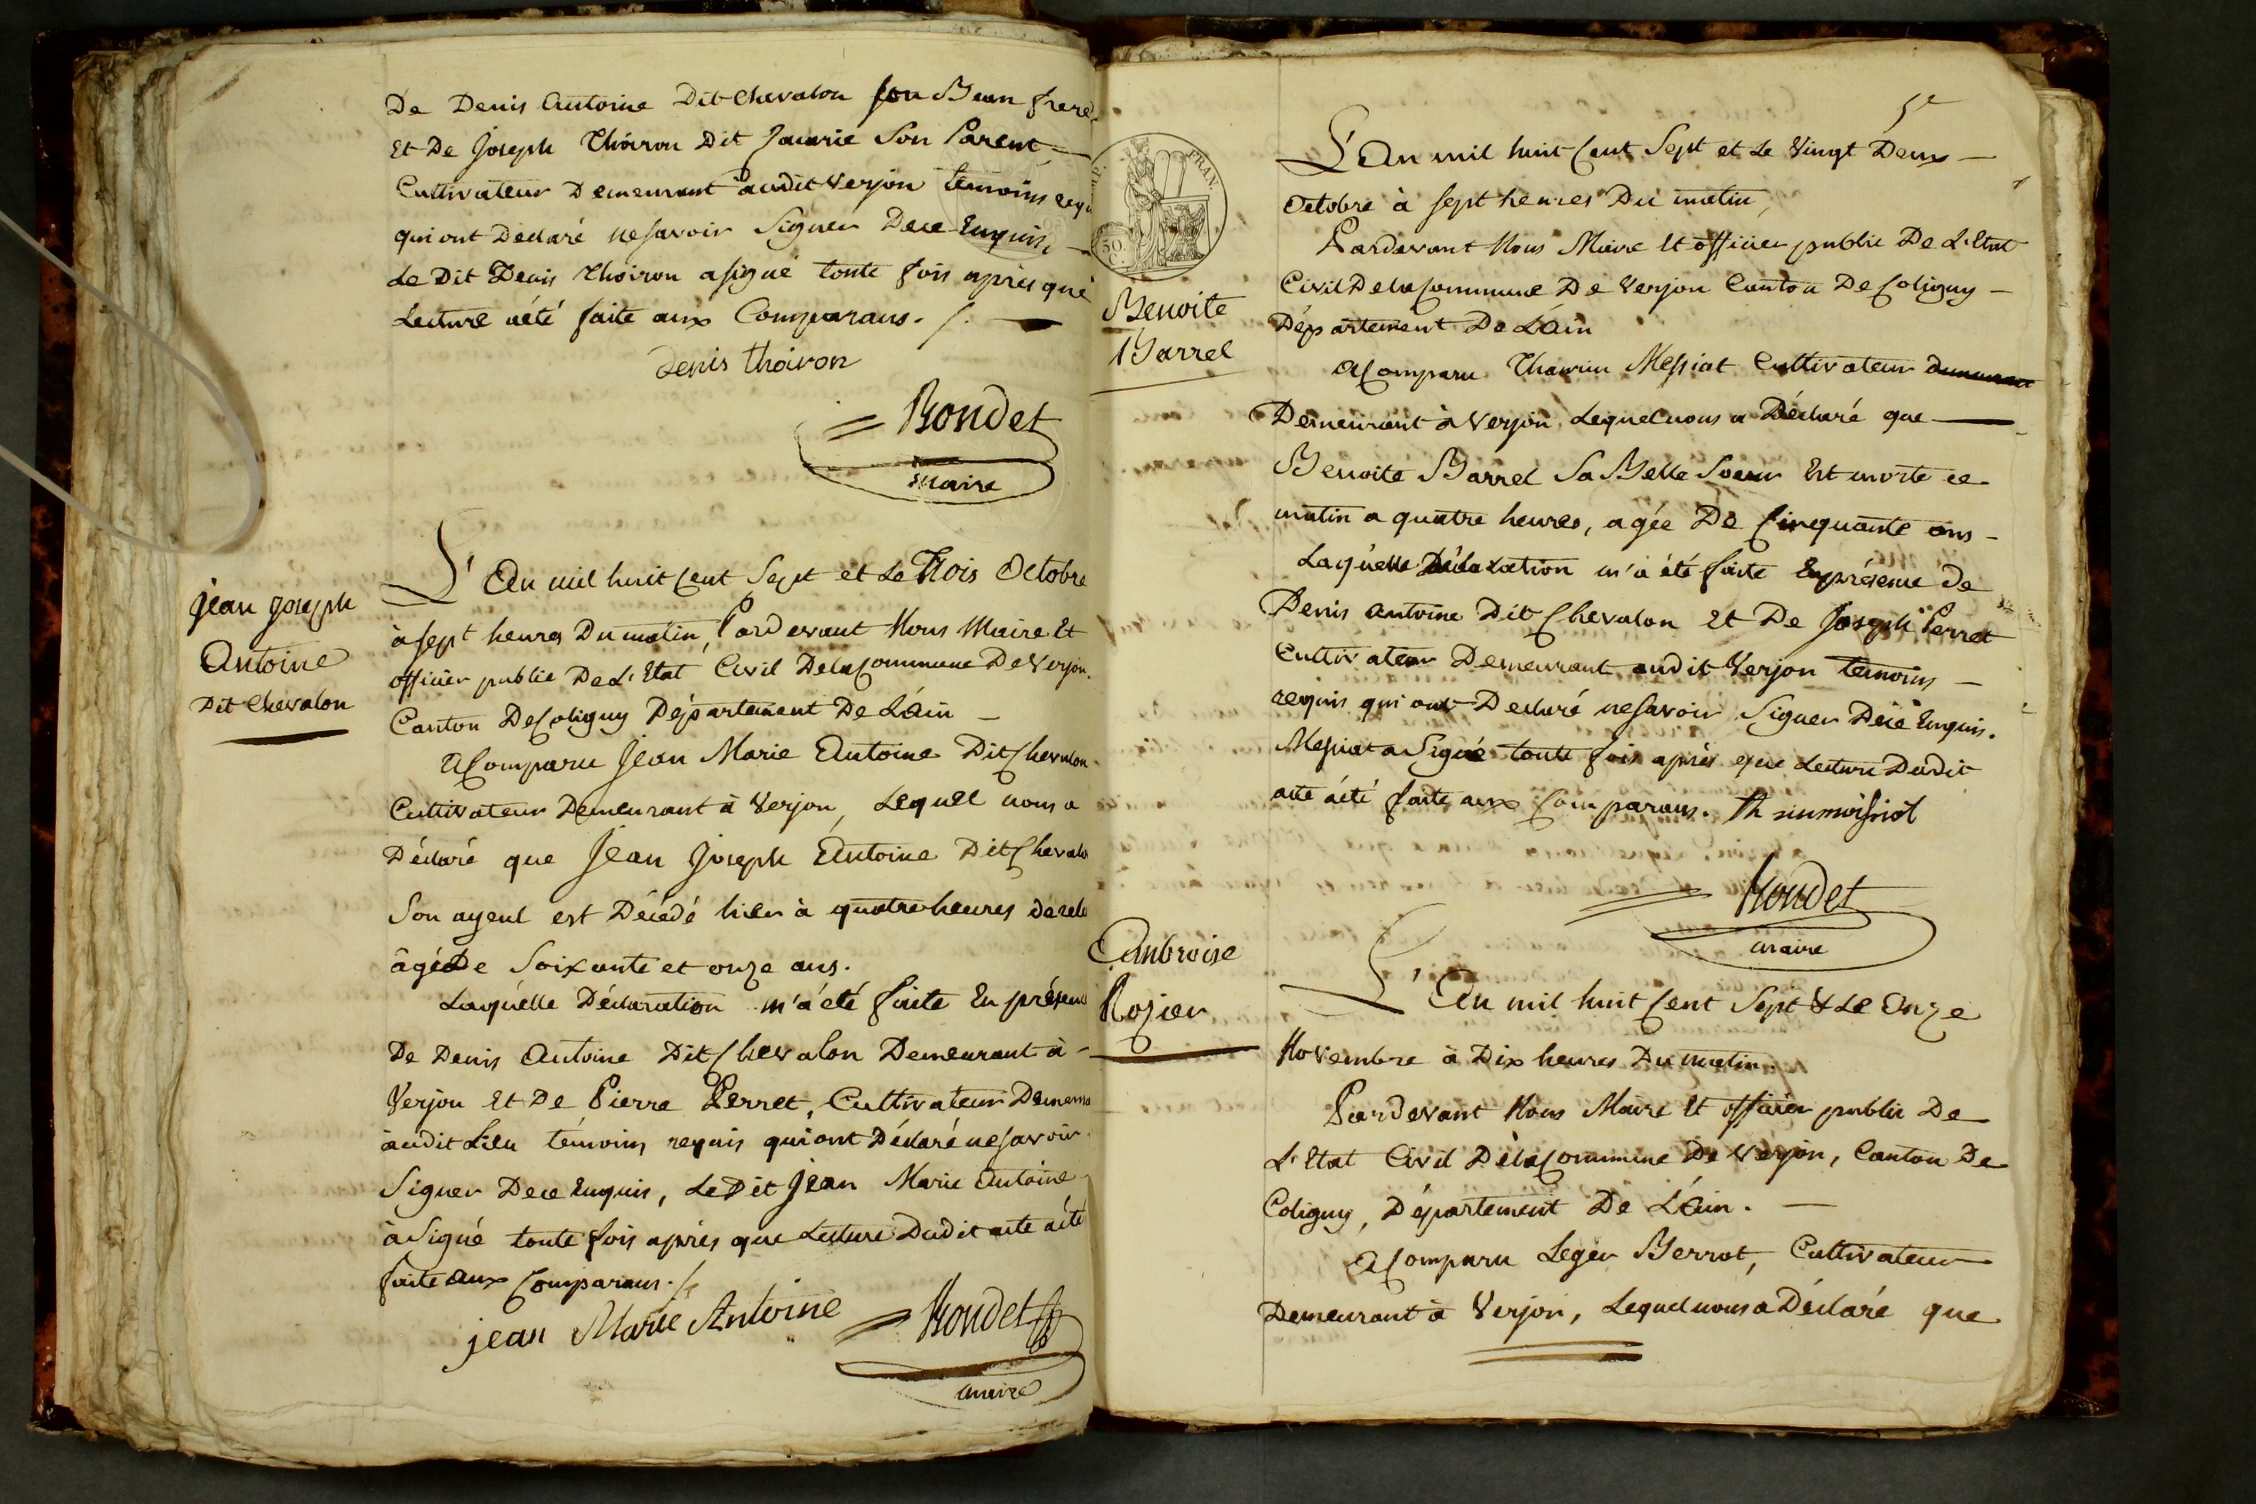 De Denis Antoine Dit Chevalon son Beau frere
Et De Joseph Thoiron Dit Son Parent
Cultivateur Demeurant audit Verjon temoins requ
qui ont Declaré ne savoir Signer De ce Enquis,
Le Dit Denis Thoiron a signé toute fois après que
Lecture a été faite aux Comparans.
Denis thoiron
Rondet
maire
jean joseph
Antoine
Dit Chevalon
L'An mil huit Cent Sept et Le Trois Octobre
à sept heures Du matin, Pardevant Nous Maire Et
officier public De L'Etat Civil De la Commune De Verjon.
Canton De Coligny Département De L'ain —
A Comparu Jean Marie Antoine Dit Chevalon
Cultivateur Demeurant à Verjon, Lequel nous a
Déclaré que Jean Joseph Antoine Dit Chevalo
Son ayeul est Décédé hier à quatre heures
âgé De Soixante et onze ans.
Laquélle Déclaration m'a été faite En présence
De Denis Antoine Dit Chevalon Demeurant à -
Verjon Et De Pierre Perret, Cultivateur Demeura
audit Lieu témoins requis qui ont Déclaré ne savoir
Signer De ce Enquis, Le Dit Jean Marie Antoine
à Signé toute fois après que Lecture Dudit acte a été
faite aux Comparans.
jean Marie Antoine
Rondet
maire
5e
FRAN.
50
C.
Benoite
Barrel
L'An mil huit Cent Sept et Le Vingt Deux —
Octobre à sept heures Du matin,
Pardevant Nous Maire Et officier public De L'Etat
Civil De la Commune De Verjon Canton De Coligny —
Département De L'Ain
A Comparu Thaurin Messiat Cultivateur
Demeurant à Verjon Lequel nous a Déclaré que —
Benoite Barrel Sa Belle Soeur Est morte ce
matin a quatre heures, agée De Cinquante ans —
Laquelle Déclaration m'a été faite En présence de
Denis Antoine Dit Chevalon Et De Joseph Perret
Cultivateur Demeurant audit Verjon témoins —
requis qui ont Declaré ne savoir Signer De ce Enquis.
Messiat a Signé toute fois après que Lecture Dudit
acte a été faite aux Comparans.
Rondet
maire
Ambroise
Rozier
L'An mil huit Cent Sept & Le Onze
Novembre à Dix heures Du matin.
Pardevant Nous Maire Et officier public De
L'Etat Civil De la Commune De Verjon, Canton De
Coligny, Département De L'Ain. —
A Comparu Leger Berrot, Cultivateur
Demeurant à Verjon, Lequel nous a Déclaré que